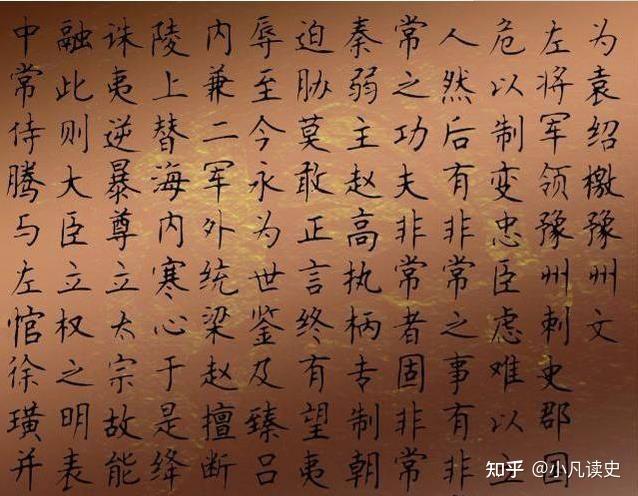 为袁绍檄豫州文
左将军领豫州刺史郡国
危以制变忠臣虑难以立
人然后有非常之事有非
常之功夫非常者固非常
秦弱主赵高执柄专制朝
迫胁莫敢正言终有望夷
辱至今永为世鉴及臻吕
内兼二军外统梁赵擅断
陵上替海内寒心于是绛
诛夷逆暴尊立太宗故能
融此则大臣立权之明表
中常侍腾与左悺徐璜并
知乎 @小凡读史